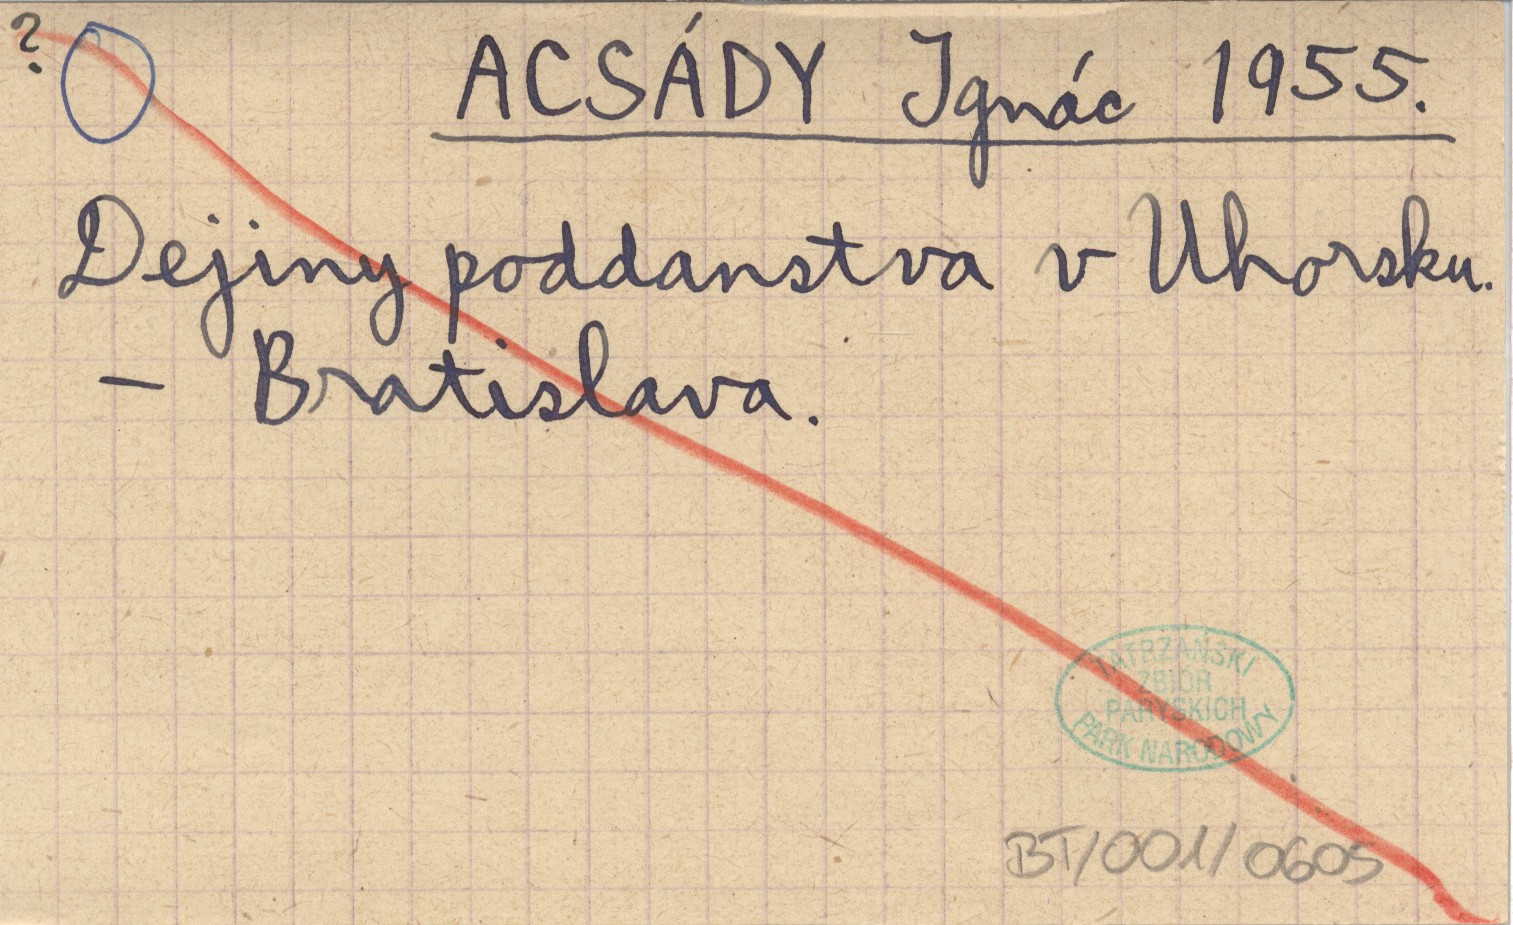 ?
ACSÁDY Ignác 1955.
Dejiny poddanstva v Uhorsku.
– Bratislava.
TATRZAŃSKI
ZBIÓR
PARYSKICH
PARK NARODOWY
BT/001/0605